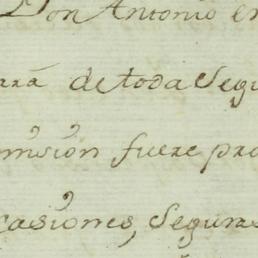 Don Antonio en
rrá de toda Segu
omisión fuere pro
casiones, Seguras